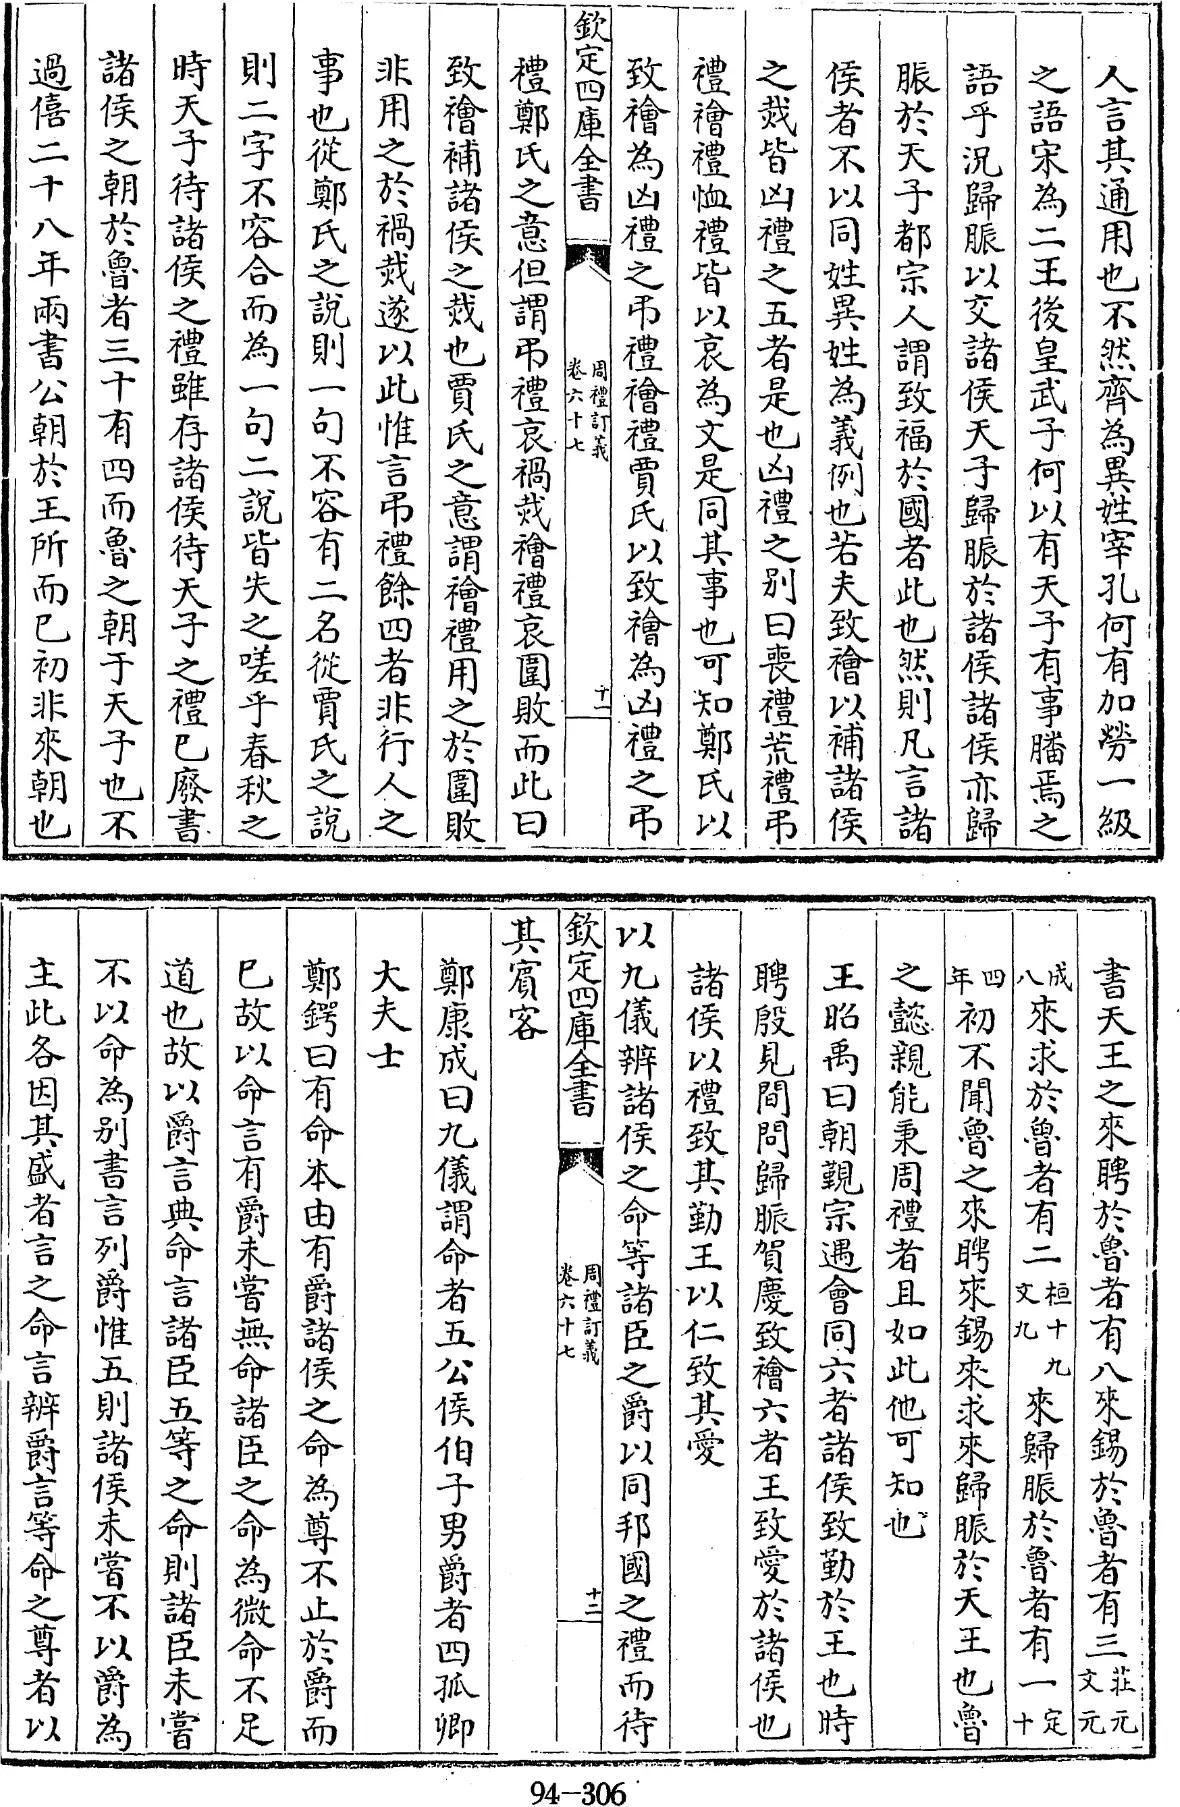 人言其通用也不然齊為異姓宰孔何有加勞一級
之語宋為二王後皇武子何以有天子有事膰焉之
語乎況歸脤以交諸侯天子歸脤於諸侯諸侯亦歸
脤於天子都宗人謂致福於國者此也然則凡言諸
侯者不以同姓異姓為義例也若夫致禬以補諸侯
之烖皆凶禮之五者是也凶禮之别曰喪禮荒禮弔
禮禬禮恤禮皆以哀為文是同其事也可知鄭氏以
致禬為凶禮之弔禮禬禮賈氏以致禬為凶禮之弔
欽定四庫全書
周禮訂義
卷六十七
十一
禮鄭氏之意但謂弔禮哀禍烖禬禮哀圍敗而此曰
致禬補諸侯之烖也賈氏之意謂禬禮用之於圍敗
非用之於禍烖遂以此惟言弔禮餘四者非行人之
事也從鄭氏之說則一句不容有二名從賈氏之說
則二字不容合而為一句二說皆失之嗟乎春秋之
時天子待諸侯之禮雖存諸侯待天子之禮已廢書
諸侯之朝於魯者三十有四而魯之朝于天子也不
過僖二十八年兩書公朝於王所而已初非來朝也
書天王之來聘於魯者有八來錫於魯者有三莊元文元
成八來求於魯者有二桓十九文九來歸脤於魯者有一定十
四年初不聞魯之來聘來錫來求來歸脤於天王也魯
之懿親能秉周禮者且如此他可知也
王昭禹曰朝覲宗遇會同六者諸侯致勤於王也時
聘殷見間問歸脤賀慶致禬六者王致愛於諸侯也
諸侯以禮致其勤王以仁致其愛
以九儀辨諸侯之命等諸臣之爵以同邦國之禮而待
欽定四庫全書
周禮訂義
卷六十七
十二
其賓客
鄭康成曰九儀謂命者五公侯伯子男爵者四孤卿
大夫士
鄭鍔曰有命本由有爵諸侯之命為尊不止於爵而
已故以命言有爵未嘗無命諸臣之命為微命不足
道也故以爵言典命言諸臣五等之命則諸臣未嘗
不以命為别書言列爵惟五則諸侯未嘗不以爵為
主此各因其盛者言之命言辨爵言等命之尊者以
94-306